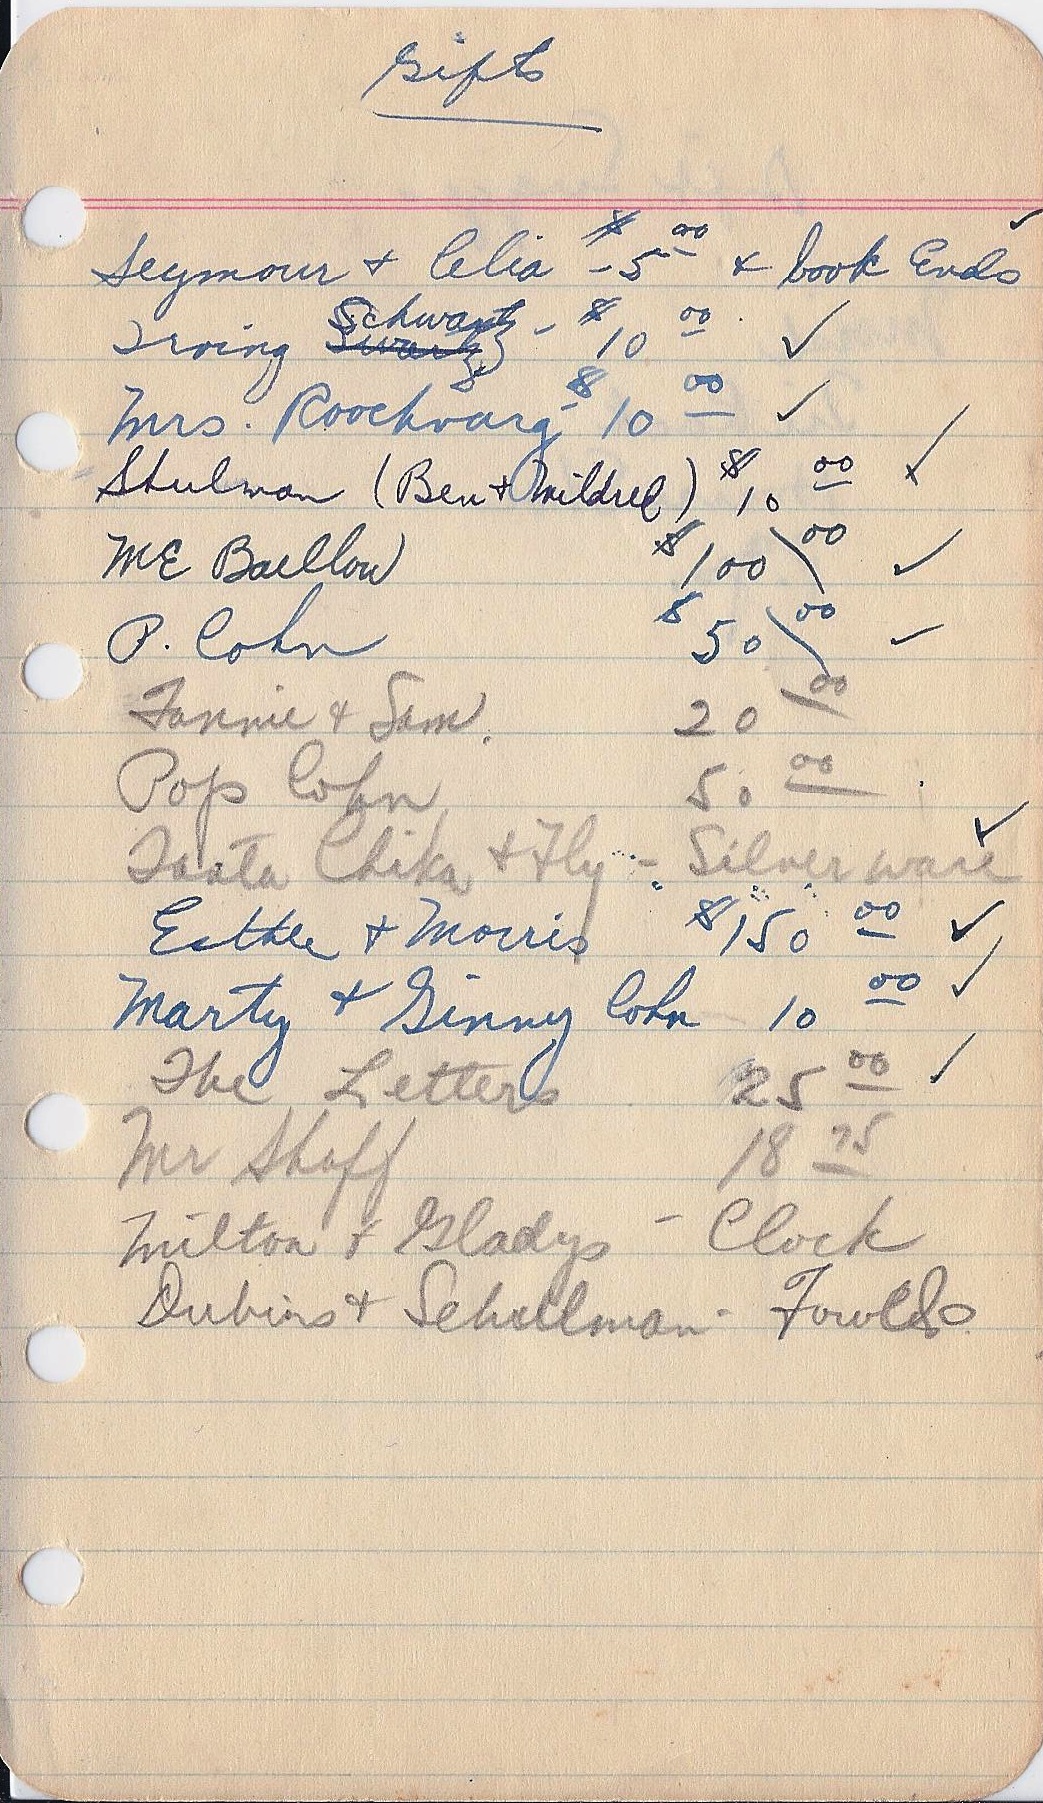 Gifts
Seymour & Celia - $5.00 & book Ends ✓
Irving Schwartz - $10.00 ✓
Mrs. Roochvarg - $10.00 ✓
Shulman (Ben & Mildred) $10.00 ✓
$100.00 ✓
P. Cohn $50.00 ✓
Fannie & Sam. 20.00
Pop Cohn 50.00
Tanta Chika & Fly - Silverware ✓
Esther & Morris $150.00 ✓
Marty & Ginny Cohn 10.00 ✓
The Letters 25.00 ✓
Mr Shoff 18.75
Milton & Gladys - Clock
Dubins & Schullman -